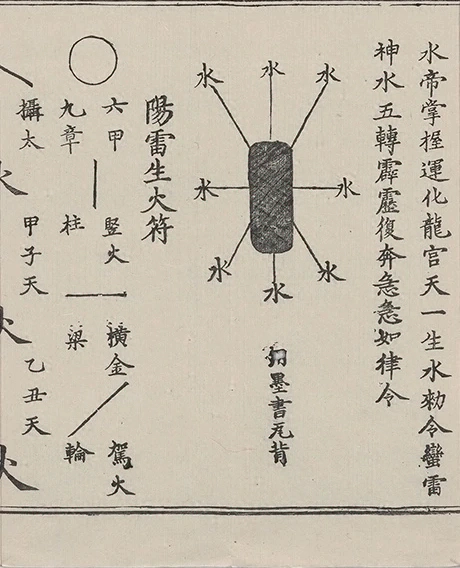 水帝掌握運化龍宫天一生水勑令蠻雷
神水五轉霹靂復奔急急如律令
水
水
水
水
水
水
水
水
墨書瓦背
陽雷生火符
六甲 竪火 横金 駕火
九章 柱 梁 輪
攝太 甲子天 乙丑天